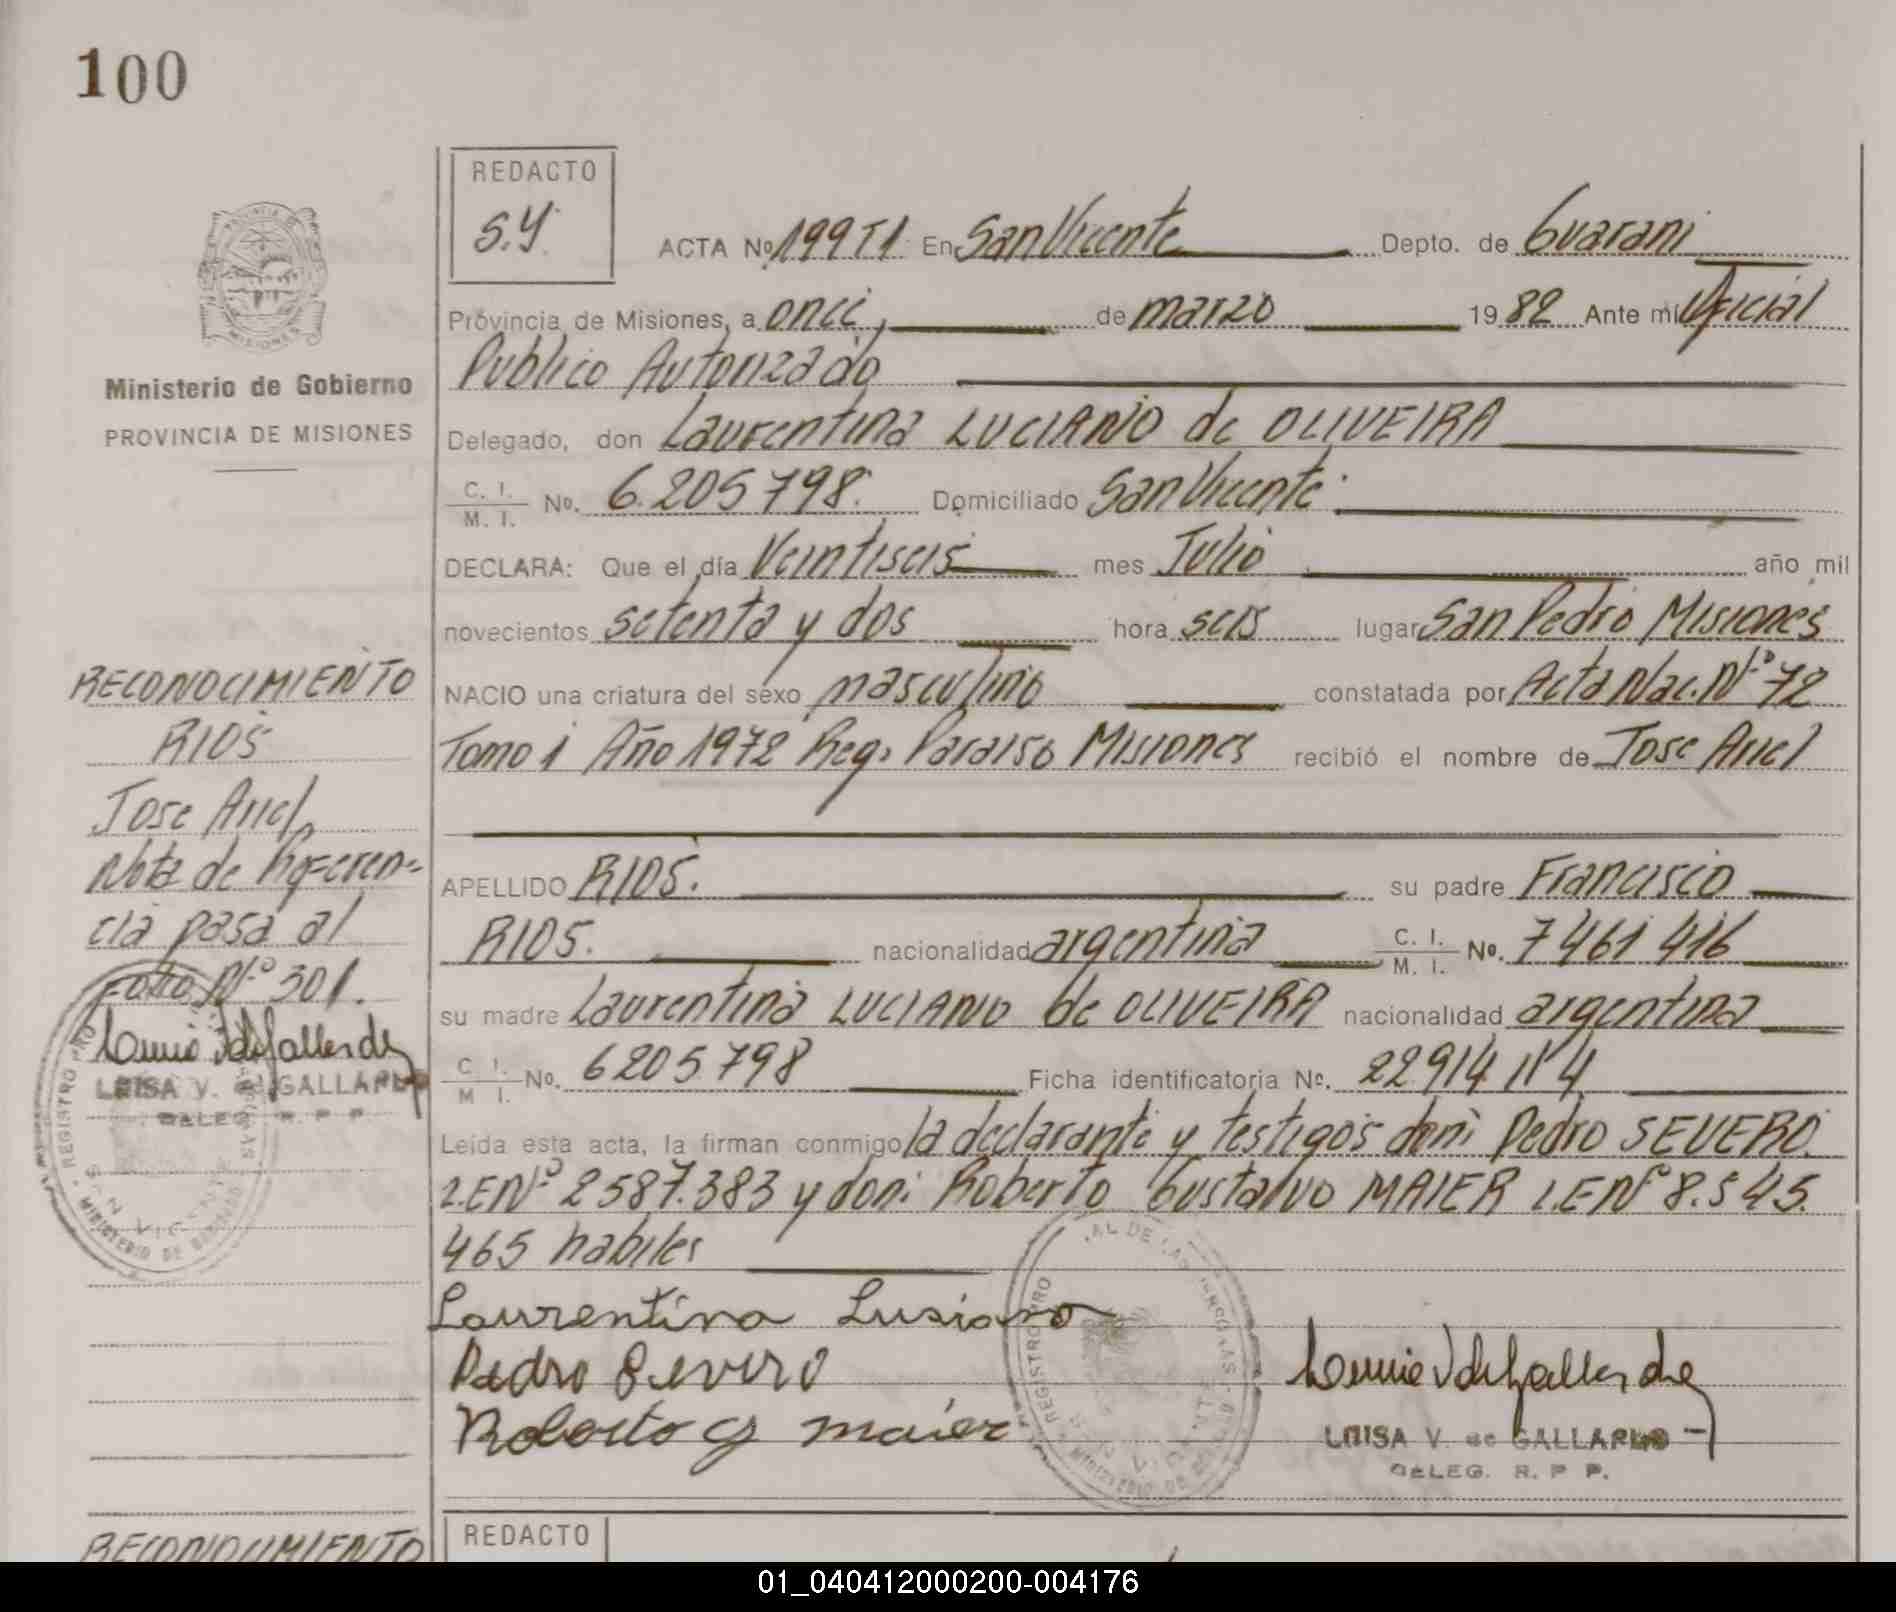 100
REDACTO
S.Y.
ACTA No. 199 T1 En San Vicente Depto. de Guarani
Provincia de Misiones, a once, de marzo 1982 Ante mi Oficial
Publico Autorizado
Ministerio de Gobierno
PROVINCIA DE MISIONES
Delegado, don Laurentina LUCIANO de OLIVEIRA
C. I.
M. I. No. 6.205798. Domiciliado San Vicente
DECLARA: Que el día Veintiseis mes Julio año mil
novecientos setenta y dos hora seis lugar San Pedro Misiones
NACIO una criatura del sexo masculino constatada por Acta Nac. Nº 72
Tomo 1 Año 1972 Reg. Paraiso Misiones recibió el nombre de Jose Ariel
APELLIDO RIOS. su padre Francisco
RIOS. nacionalidad argentina C. I. M. I. No. 7461416
su madre Laurentina LUCIANO de OLIVEIRA nacionalidad argentina
C. I. M I. No. 6205798 Ficha identificatoria No. 22914114
Leída esta acta, la firman conmigo la declarante y testigos don: Pedro SEVERO.
L.E Nº 2587.383 y don: Roberto Gustavo MAIER L.E Nº 8.545.
465 habiles
Laurentina Lusiano
Pedro Severo
Roberto G maier
LUISA V. de GALLARDO
DELEG. R. P P.
RECONOCIMIENTO
RIOS
Jose Ariel
Nota de Referen-
cia pasa al
Folio Nº 301.
LUISA V. de GALLARDO
DELEG. R. P P.
RECONOCIMIENTO
REDACTO
01_040412000200-004176